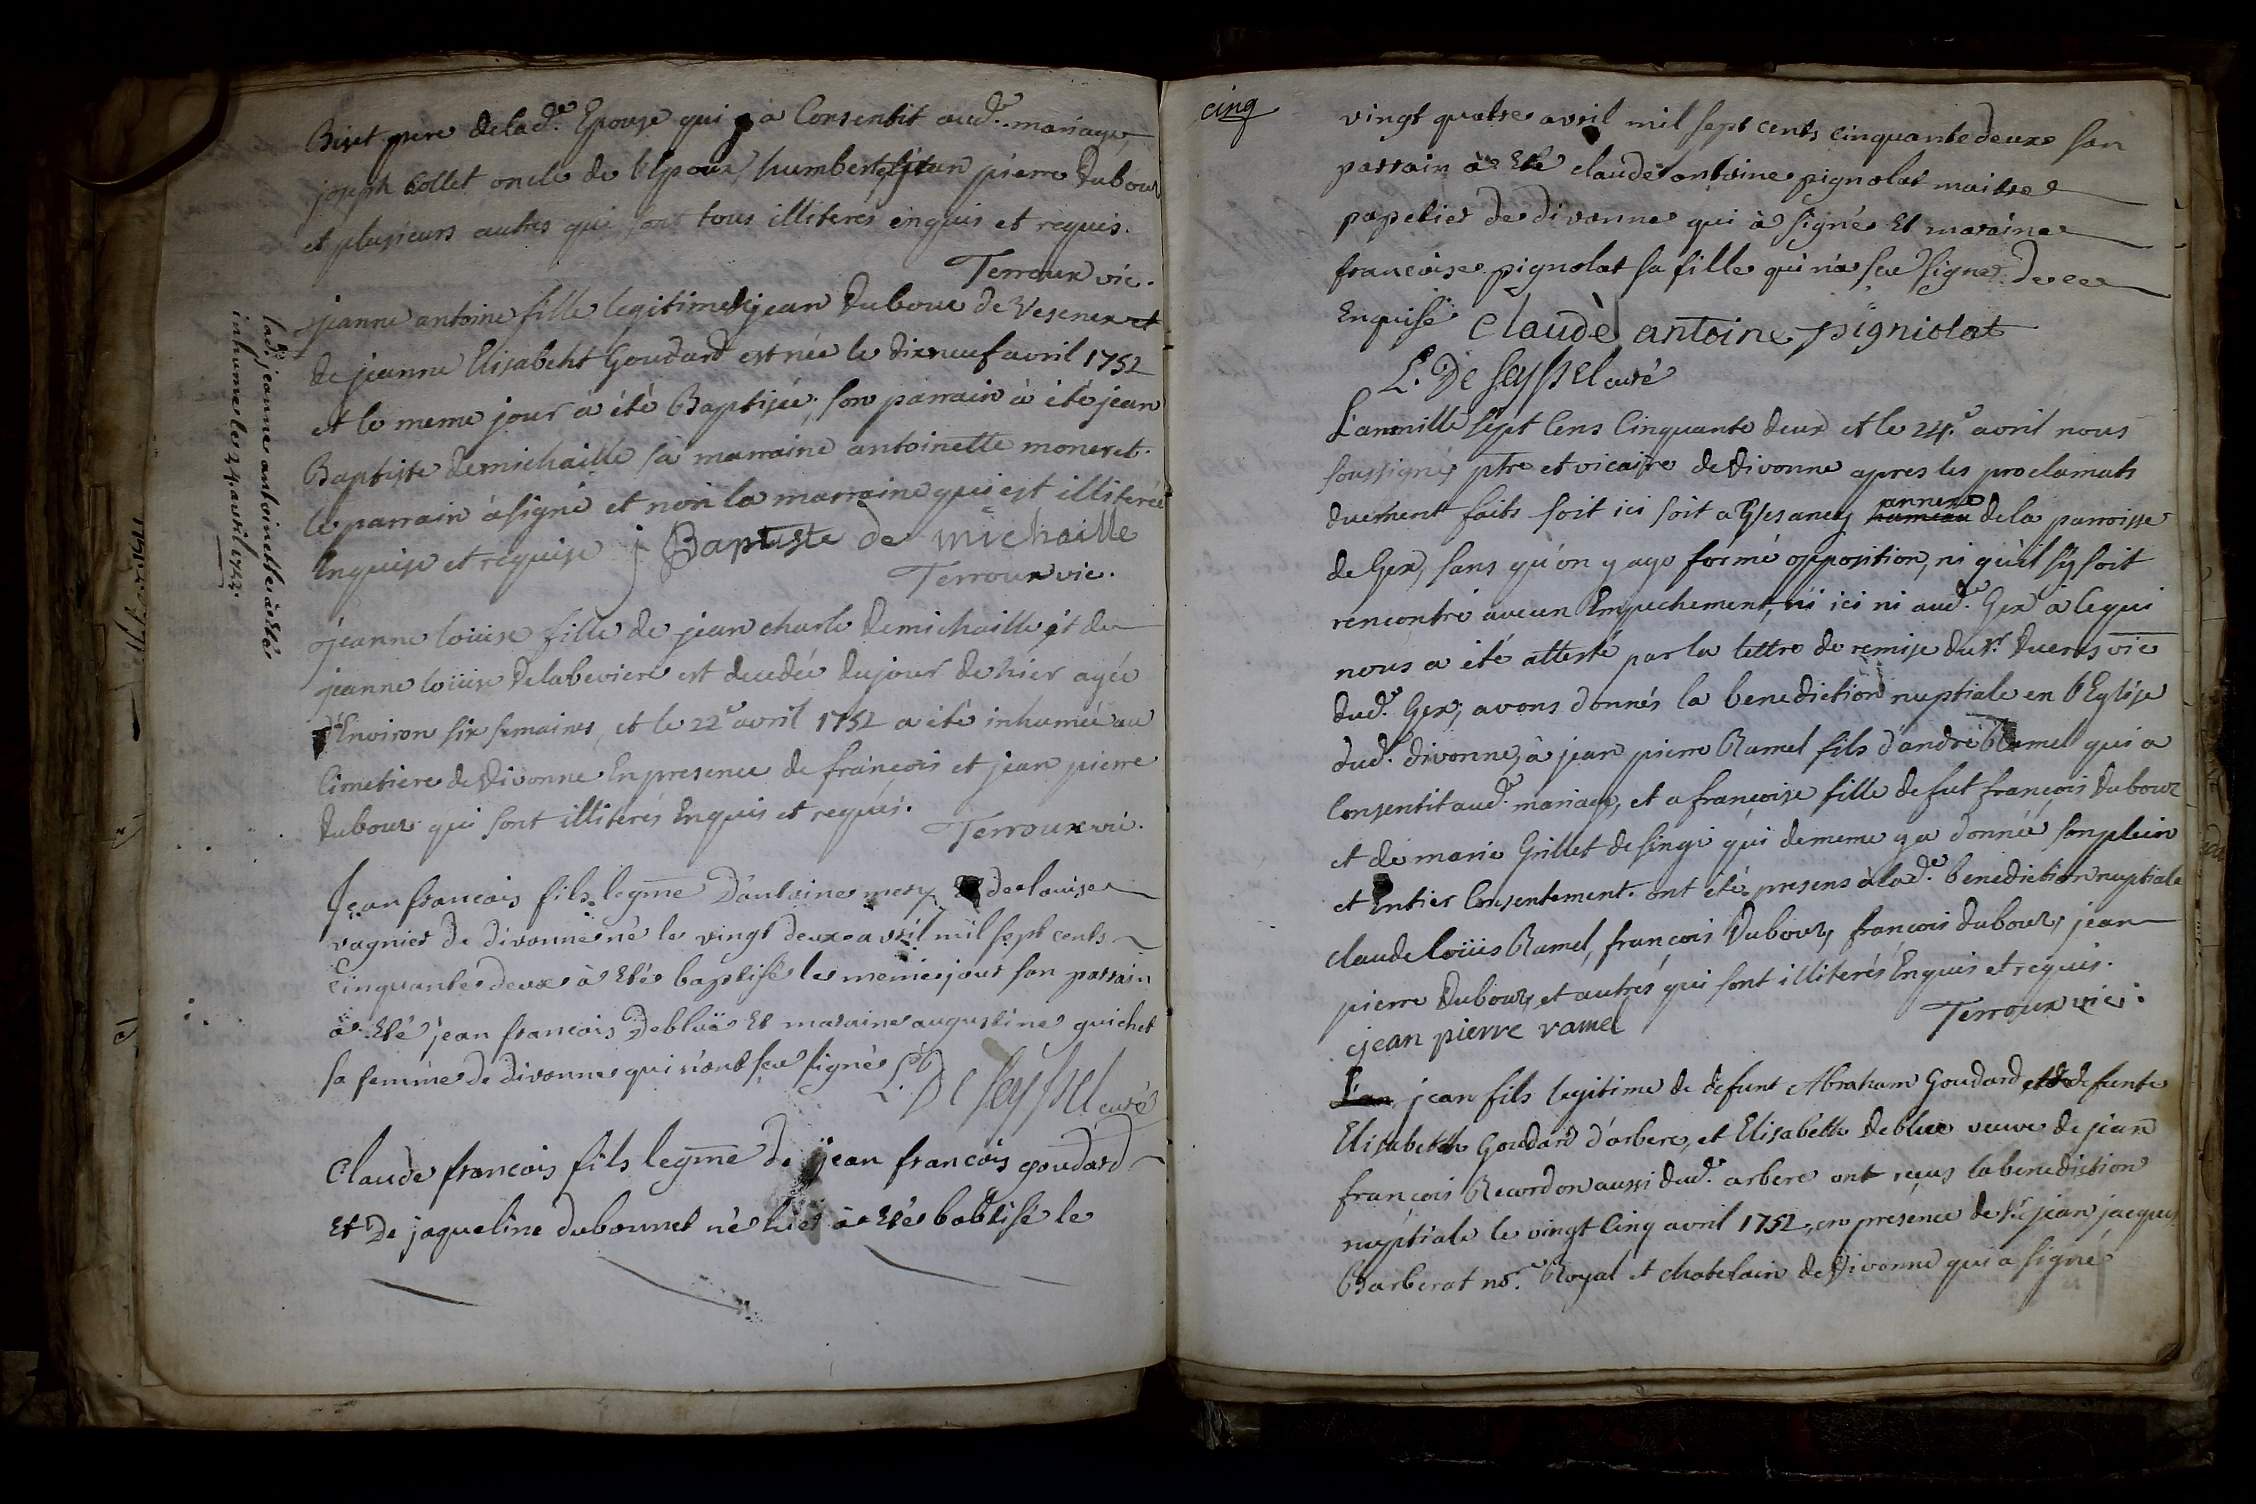 Biset pere de lad.e Epouse qui a Consentit aud.e mariage,
joseph Collet oncle de l'Epoux, humbert, jean pierre Dubour
et plusieurs autres qui sont tous illiteres enquis et requis.
Terroux vic.
jeanne antoine fille legitime de jean Dubour de Vesenex et
de jeanne Elisabeht Goudard est née le dixneuf avril 1752
et le meme jour a été Baptisée; son parrain à été jean
Baptiste demichaille sa marraine antoinette moneret.
le parrain à signé et non la marraine qui est illiterée
Enquise et requise j Baptiste de michaille
Terroux vic.
lad.e jeanne antoinette à été
inhumée le 24. avril 1752.
jeanne loüise fille de jean charle demichaille et de
jeanne loüise Delabeviere est decedée du jour de hier agée
d'Environ six semaines, et le 22.e avril 1752 a été inhumée au
Cimetiere de Divonne En presence de françois et jean pierre
Dubour qui sont illiterés Enquis et requis.
Terroux vic.
Jean francois fils legme D'antoine mery Et de louise
vagnier de divonne né le vingt deux avril mil sept cents
Cinquante deux à Eté baptisé le meme jour son parrain
à Eté jean francois Debluë Et maraine augustine guichet
sa femme de divonne qui n'ont sçu signé L. De Seyssel curé
Claude francois fils legme de jean francois goudard
Et De jaqueline dubonnet né hier à Eté babtisé le
cinq
vingt quatre avril mil sept cents cinquante deux son
parrain à Eté claude antoine pignolat maitre
papetier de divonne qui à signé Et maraine
francoise pignolat sa fille qui n'a sçu signer de ce
Enquise Claude antoine pigniolat
L. De Seyssel curé
L'an mille sept Cens Cinquante deux et le 24.e avril nous
soussigné ptre et vicaire de Divonne apres les proclamats
duement faits soit ici soit a Gesancy hameau annexe de la parroisse
de Gex, sans qu'on y aye formé opposition, ni qu'il s'y soit
rencontré aucun Empechement, ni ici ni aud.e Gex à ce qui
nous a été attesté par la lettre de remise du Sr. Dueres vic
dud.e Gex; avons donnés la benediction nuptiale en l'Eglise
dud.e divonne, à jean pierre Ramel fils d'andré Ramel qui a
Consentit aud.e mariage, et a françoise fille de fut françois Dubour
et de marie Grillet de singi qui de meme y a donnée son plein
et Entier Consentement. ont été presens à lad.e benediction nuptiale
claude loüis Ramel, françois Dubour, françois dubour, jean
pierre Dubour, et autres qui sont illiterés Enquis et requis.
jean pierre ramel Terroux vic:
L'an jean fils legitime de defunt Abraham Goudard et de defunte
Elisabeth Goudard d'arbere, et Elisabeth Deblue veuve de jean
françois Recordon aussi dud.e arbere ont reçus la benediction
nuptiale le vingt Cinq avril 1752, en presence de Sr. jean jacques
Barberat no.re Royal et chatelain de Divonne qui a signé